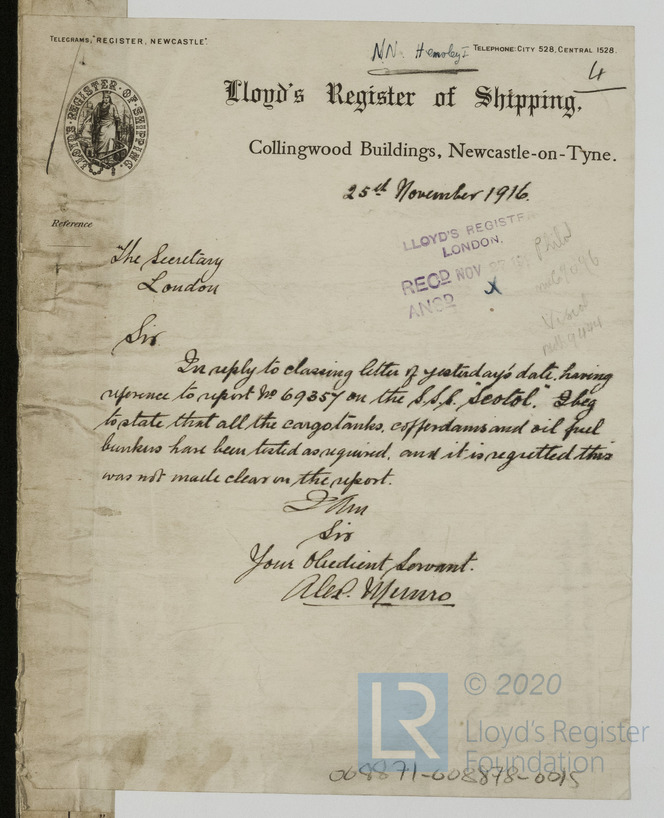 TELEGRAMS, "REGISTER, NEWCASTLE".
TELEPHONE: CITY 528, CENTRAL 1528.
4
LLOYD'S REGISTER OF SHIPPING.
Lloyd's Register of Shipping,
Collingwood Buildings, Newcastle-on-Tyne.
25th November 1916.
Reference
LLOYD'S REGISTER
LONDON.
RECD NOV 27 16
ANSD x
The Secretary
London
Sir
In reply to classing letter of yesterday's date, having
reference to report No 69357 on the S.S. "Scotol." I beg
to state that all the cargo tanks, cofferdams and oil fuel
bunkers have been tested as required, and it is regretted this
was not made clear on the report.
I Am
Sir
Your Obedient Servant.
Alex. Munro
LR
© 2020
Lloyd's Register
Foundation
008871-008878-0015